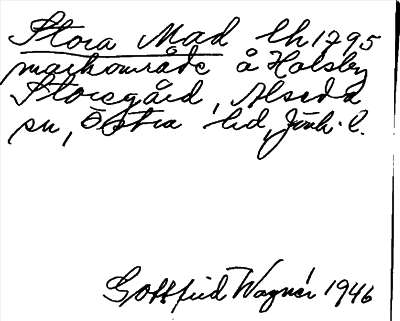 Stora Mad lh 1795
markområde å Holsby
Storegård, Alseda
sn, Östra hd, Jönk. l.
Gottfrid Wagnér 1946